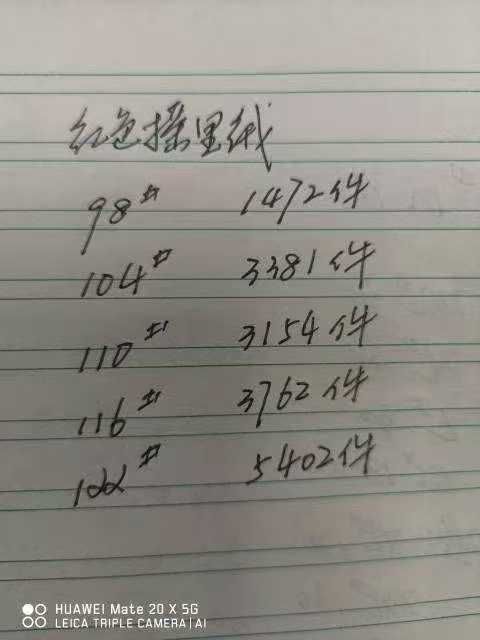 红色摇里绒
98# 1472件
104# 3381件
110# 3154件
116# 3762件
122# 5402件
HUAWEI Mate 20 X 5G
LEICA TRIPLE CAMERA | AI